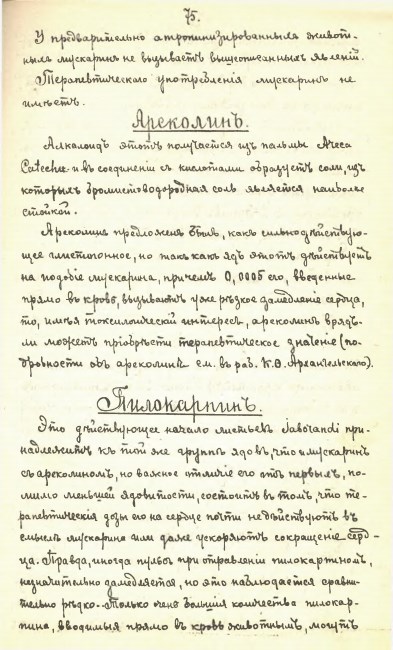 75.
У предварительно атропинизированныхъ живот-
ныхъ мускаринъ не вызываетъ вышеописанныхъ явленій.
Терапевтическаго употребленія мускаринъ не
имѣетъ.
Ареколинъ.
Алкалоидъ этотъ получается изъ пальмы Areca
Catechu и въ соединеніи съ кислотами образуетъ соли, изъ
которыхъ бромистоводородная соль является наиболѣе
стойкой.
Ареколинъ предложенъ былъ, какъ сильнодѣйствую-
щее глистогонное, но такъ какъ ядъ этотъ дѣйствуетъ
на подобіе мускарина, причемъ 0,0005 его, введенные
прямо въ кровь, вызываютъ уже рѣзкое замедленіе сердца,
то, имѣя токсилогическій интересъ, ареколинъ врядъ-
ли можетъ пріобрѣсти терапевтическое значеніе (по-
дробности объ ареколинѣ см. въ раб. К.Ѳ. Архангельскаго).
Пилокарпинъ.
Это дѣйствующее начало листьевъ Jaborandi при-
надлежитъ къ той же группѣ ядовъ, что и мускаринъ
съ ареколиномъ, но важное отличіе его отъ первыхъ, по-
мимо меньшей ядовитости, состоитъ въ томъ, что те-
рапевтическія дозы его на сердце почти не дѣйствуютъ въ
смыслѣ мускарина или даже ускоряютъ сокращеніе серд-
ца. Правда, иногда пульсъ при отравленіи пилокарпиномъ,
незначительно замедляется, но это наблюдается сравни-
тельно рѣдко. Только очень большія количества пилокар-
пина, вводимыя прямо въ кровь животнымъ, могутъ